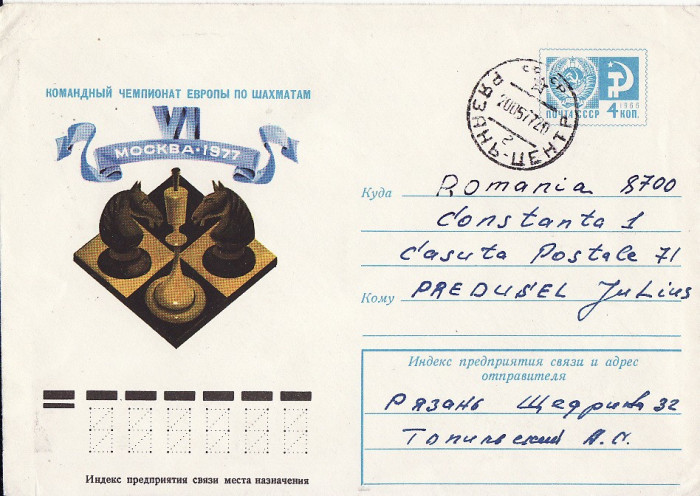 КОМАНДНЫЙ ЧЕМПИОНАТ ЕВРОПЫ ПО ШАХМАТАМ
VI
МОСКВА·1977
СССР
РЯЗАНЬ-ЦЕНТР
ПОЧТА СССР
1966
4 КОП.
Куда Romania 8700
Constanta 1
Casuta Postale 71
Кому PREDUSEL Julius
Индекс предприятия связи и адрес
отправителя
Рязань Щедрина 32
Топильский А.
Индекс предприятия связи места назначения